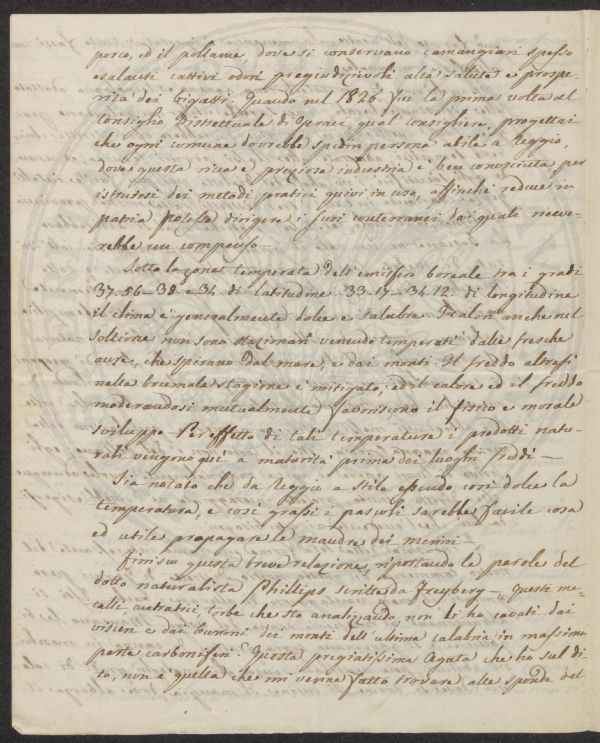 posco, ed il pollame, dove si conservano camangiari spesso
esalanti cattivi odori pregiudizievoli alla salute e prospe-
rità dei bigatti. Quando nel 1826 fui la prima volta al
Consiglio Distrettuale di Geraci, qual consigliere, progettai
che ogni comune dovrebbe spedir persona abile a Reggio,
dove questa ricca e preziosa industria è ben conosciuta per
istruirsi dei metodi pratici quivi in uso, affinchè reduce in
patria potesse dirigere i suoi conterranei dai quali riceve-
rebbe un compenso.—
Sotto la zona temperata dell'emisfero boreale tra i gradi
37.56–38 e 34 di latitudine 33–17–34.12. di longitudine
il clima è generalmente dolce e salubre. I calori anche nel
solstione non sono stazionari venendo temperati dalle fresche
aure, che spirano dal mare, e dai monti. Il freddo altresì
nella brumale stagione è mitigato; ed il calore ed il freddo
moderandosi mutualmente favoriscono il fisico e morale
sviluppo. Per effetto di tali temperature i prodotti natu-
rali vengono qui a maturità prima dei luoghi freddi.—
Sia notato che da Reggio a Stilo essendo così dolce la
temperatura, e così grassi i pascoli sarebbe facile cosa
ed utile propagare le mandre dei merini.—
Finisco questa breve relazione riportando le parole del
dotto naturalista Phillips scritte da Freyberg — „Questi me-
talli, antraciti torbe che sto analizzando, non li ho cavati dai
visceri e dai burroni dei monti dell'ultima Calabria in massima
parte carboniferi? Questa pregiatissima Agata che ho sul di-
to, non è quella che mi venne fatto trovare alle sponde del